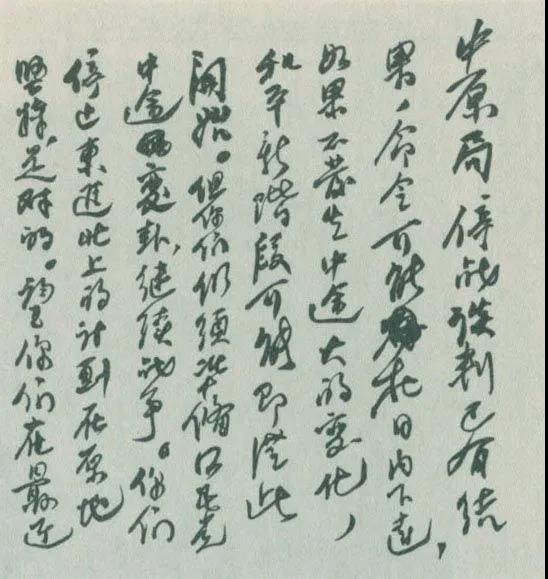 中原局 停战谈判已有结
果，命令可能於日内下达，
如果不發生中途大的变化，
和平新階段可能即從此
開始。但你们仍须準備国民党
中途變卦，继續战争。你们
停止東進北上的计划在原地
坚持，是对的。望你们在最近